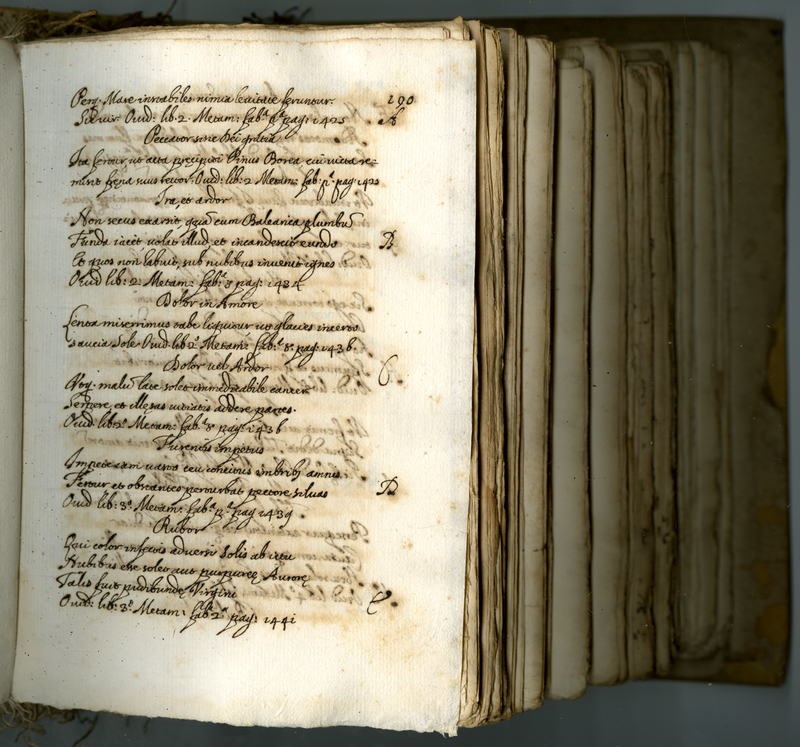 Perq. Mare instabiles nimia levitate feruntur. 190
Sic iux. Ouid: lib. 2. Metam: fab.ª p.ª pag: 1425 A
Peccator sine Dei gratia
Ita fertur, ut acta præcipiti Pinus Borea cui victa re=
misit frena suus rector. Ouid: lib: 2 Metam: fab: p.ª pag: 1425
Ira, et ardor
Non secus exarsit, quã cum Balearica plumbũ
Funda iacit, volat illud, et incandescit eundo B
Et quos non habuit, sub nubibus invenit ignes
Ouid lib: 2. Metam: fab.ª 8 pag: 1434
Dolor in Amore
Lenta miserrimus tabe liquitur ut glacies incerto
saucia sole Ouid. lib. 2.º Metam: fab.ª 8. pag: 1436.
Dolor vel Ardor C
Utq. malũ late solet immedicabile cancer
Serpere, et illesas vitiatis addere partes.
Ouid. lib. 2.º Metam: fab.ª 8 pag: 1436
Furentis impetus
Impete nunc vasto ceu concitus imbribq amnis
Fertur et obstantes perturbat pectore silvas D
Ouid lib: 3.º Metam: fab.ª p.ª pag 1439.
Rubor
Qui color infectis adversi solis ab ictu
Nubibus esse solet aut purpureę Aurorę
Talis fuit pudibundę Virgini
Ouid: lib: 3.º Metam: fab.ª 2.ª pag: 1441 E